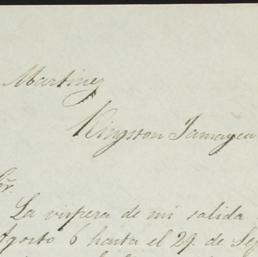 Martinez
Kingston Jamayca
Sr.
La vispera de mi salida
Agosto 6 hasta el 29. de Se